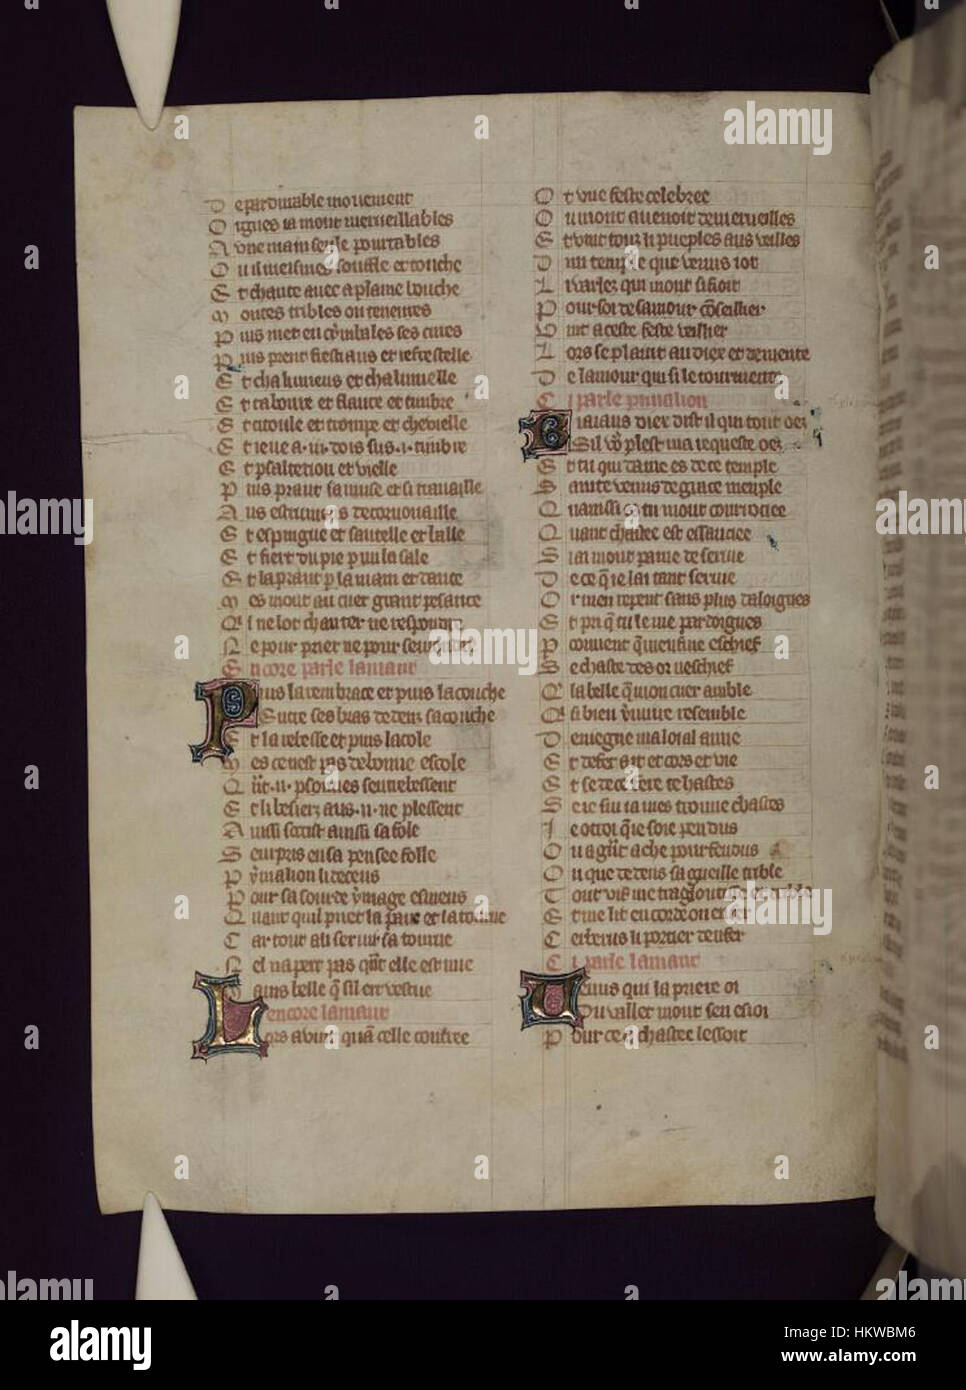 De pardurable mouement
Orgues ia mout merueillables
A vne main seule portables
Ou il meismes souffle et touche
Et chante auec a plaine bouche
Motes tribles ou teneures
Puis met en cymbales ses cures
Puis prent
Et chalumeus et chalumelle
Et tabour et flaute et timbre
Et citole et trompe et cheuelle
Et psalterion et vielle
Puis prant sa muse et si trauaille
Aus estrumens de cornouaille
Et espingue et sautelle et balle
Et fiert du pie p mi la sale
Et la prant p la main et dance
Mes mout au cuer grant pesance
Qel ne lot chanter ne respondre
Ne pour prier ne pour semondre
Encore parle lamant
Puis la rembrace et puis la couche
Entre ses bras dedenz sa couche
Et la rebesse et puis lacole
Mes ce nest pas de bonne escole
Qnt .ii. psonnes sentrebessent
Et li besierz aus .ii. ne plessent
Ainssi socist ainssi safole
Seurpris en sa pensee folle
Pymalion li deceus
Pour sa sourde ymage esmeus
Quant quil puet la pare et la tourne
Car tout a li seruir sa tourne
Nel napert pas qnt elle est nue
Mains belle q sil ert vestue
encore lamant
Lors auint quan celle contree
Ot vne feste celebree
Ou mout auenoit de merueilles
Et vint touz li pueples aus veilles
Dun temple que venus iot
Li varlez qui mout si fioit
Pour soi de samour conseillier
Vint a ceste feste veillier
Lors se plaint au diex et demente
De lamour qui si le tourmente
Ci parle pimalion
Biaiaus diex dist il qui tout oez
Sil vo plest ma requeste oez
Et tu qui dame es de ce temple
Sainte venus de grace memple
Quainssi es tu mout courrociee
Quant chastee est essauciee
Si ai mout paine deseruie
De ce q ie lai tant seruie
Or men repent sans plus daloignes
Et pri q tu le me pardoignes
p couuent q
Se chastee
Q la belle q mon cuer amble
Q si bien yuuire resemble
Deuiegne ma loial amie
Et de fer ait et cors et vie
Et se de ce fere te hastes
Se ie sui iames trouue chastes
Ie otroi q ie soie pendus
Ou a gnt ache pourfendus
Ou que dedens sa gueille trible
Tout vis me
Et me lit en corde ou en fer
Cerberus li portier denfer
Ci parle lamant
Venus qui la priere oi
Du vallet mout sen esioi
Pour ce q chastee lessoit
alamy
alamy
alamy
alamy
Image ID: HKWBM6
www.alamy.com